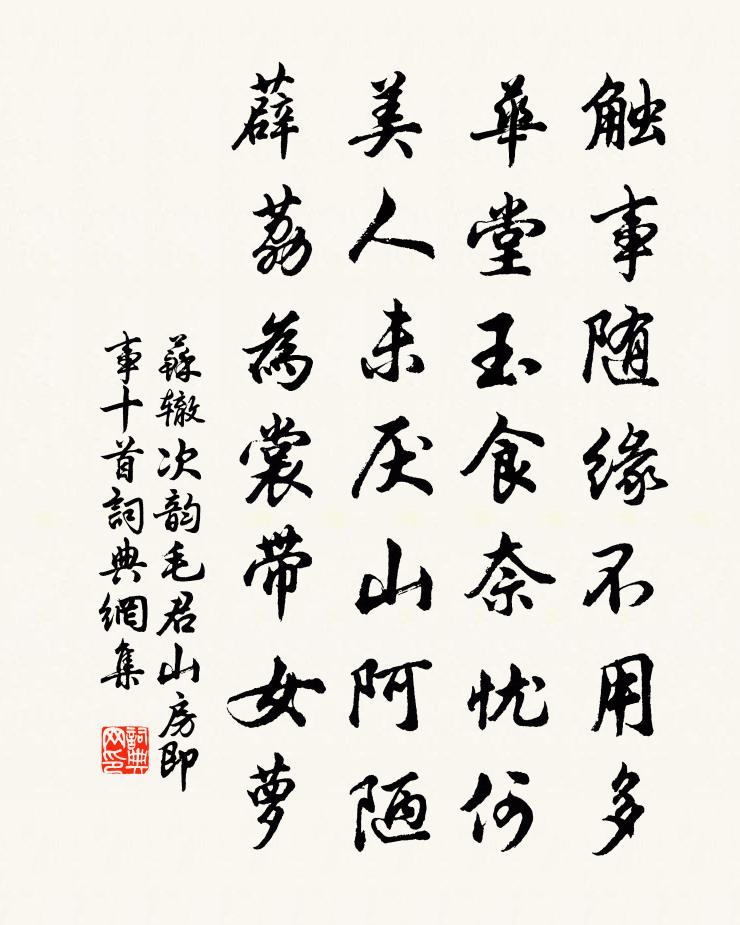 触事随缘不用多
華堂玉食奈忧何
美人未厌山阿陋
薜荔為裳带女萝
蘇辙次韵毛君山房即
事十首詞典網集
詞典网印